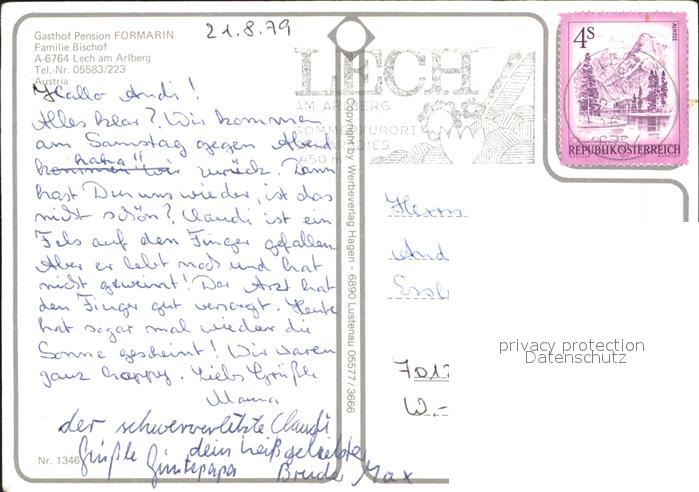 21.8.79
Gasthof Pension FORMARIN
Familie Bischof
A-6764 Lech am Arlberg
Tel.-Nr. 05583/223
Austria
Hallo Andi!
Alles klar? Wir kommen
am Samstag gegen Abend
haha!!
kommen wir zurück. Dann
hast Du uns wieder, ist das
nicht schön? Claudi ist ein
Fels auf den Finger gefallen.
Aber er lebt noch und hat
nicht geweint! Der Arzt hat
den Finger gut versorgt. Heute
hat sogar mal wieder die
Sonne gescheint! Wir waren
ganz happy. Liebe Grüßle
Mama
der schwerverletzte Claudi
Grüßle dein heißgeliebter
Bruder Max
Nr. 1346
Copyright by Werbeverlag Hagen - 6890 Lustenau 05577/3666
LECH
AM ARLBERG
SOMMERKURORT
1450 m
4S
ALMSEE
REPUBLIK ÖSTERREICH
Herrn
And
Essl
701
W.-
privacy protection
Datenschutz